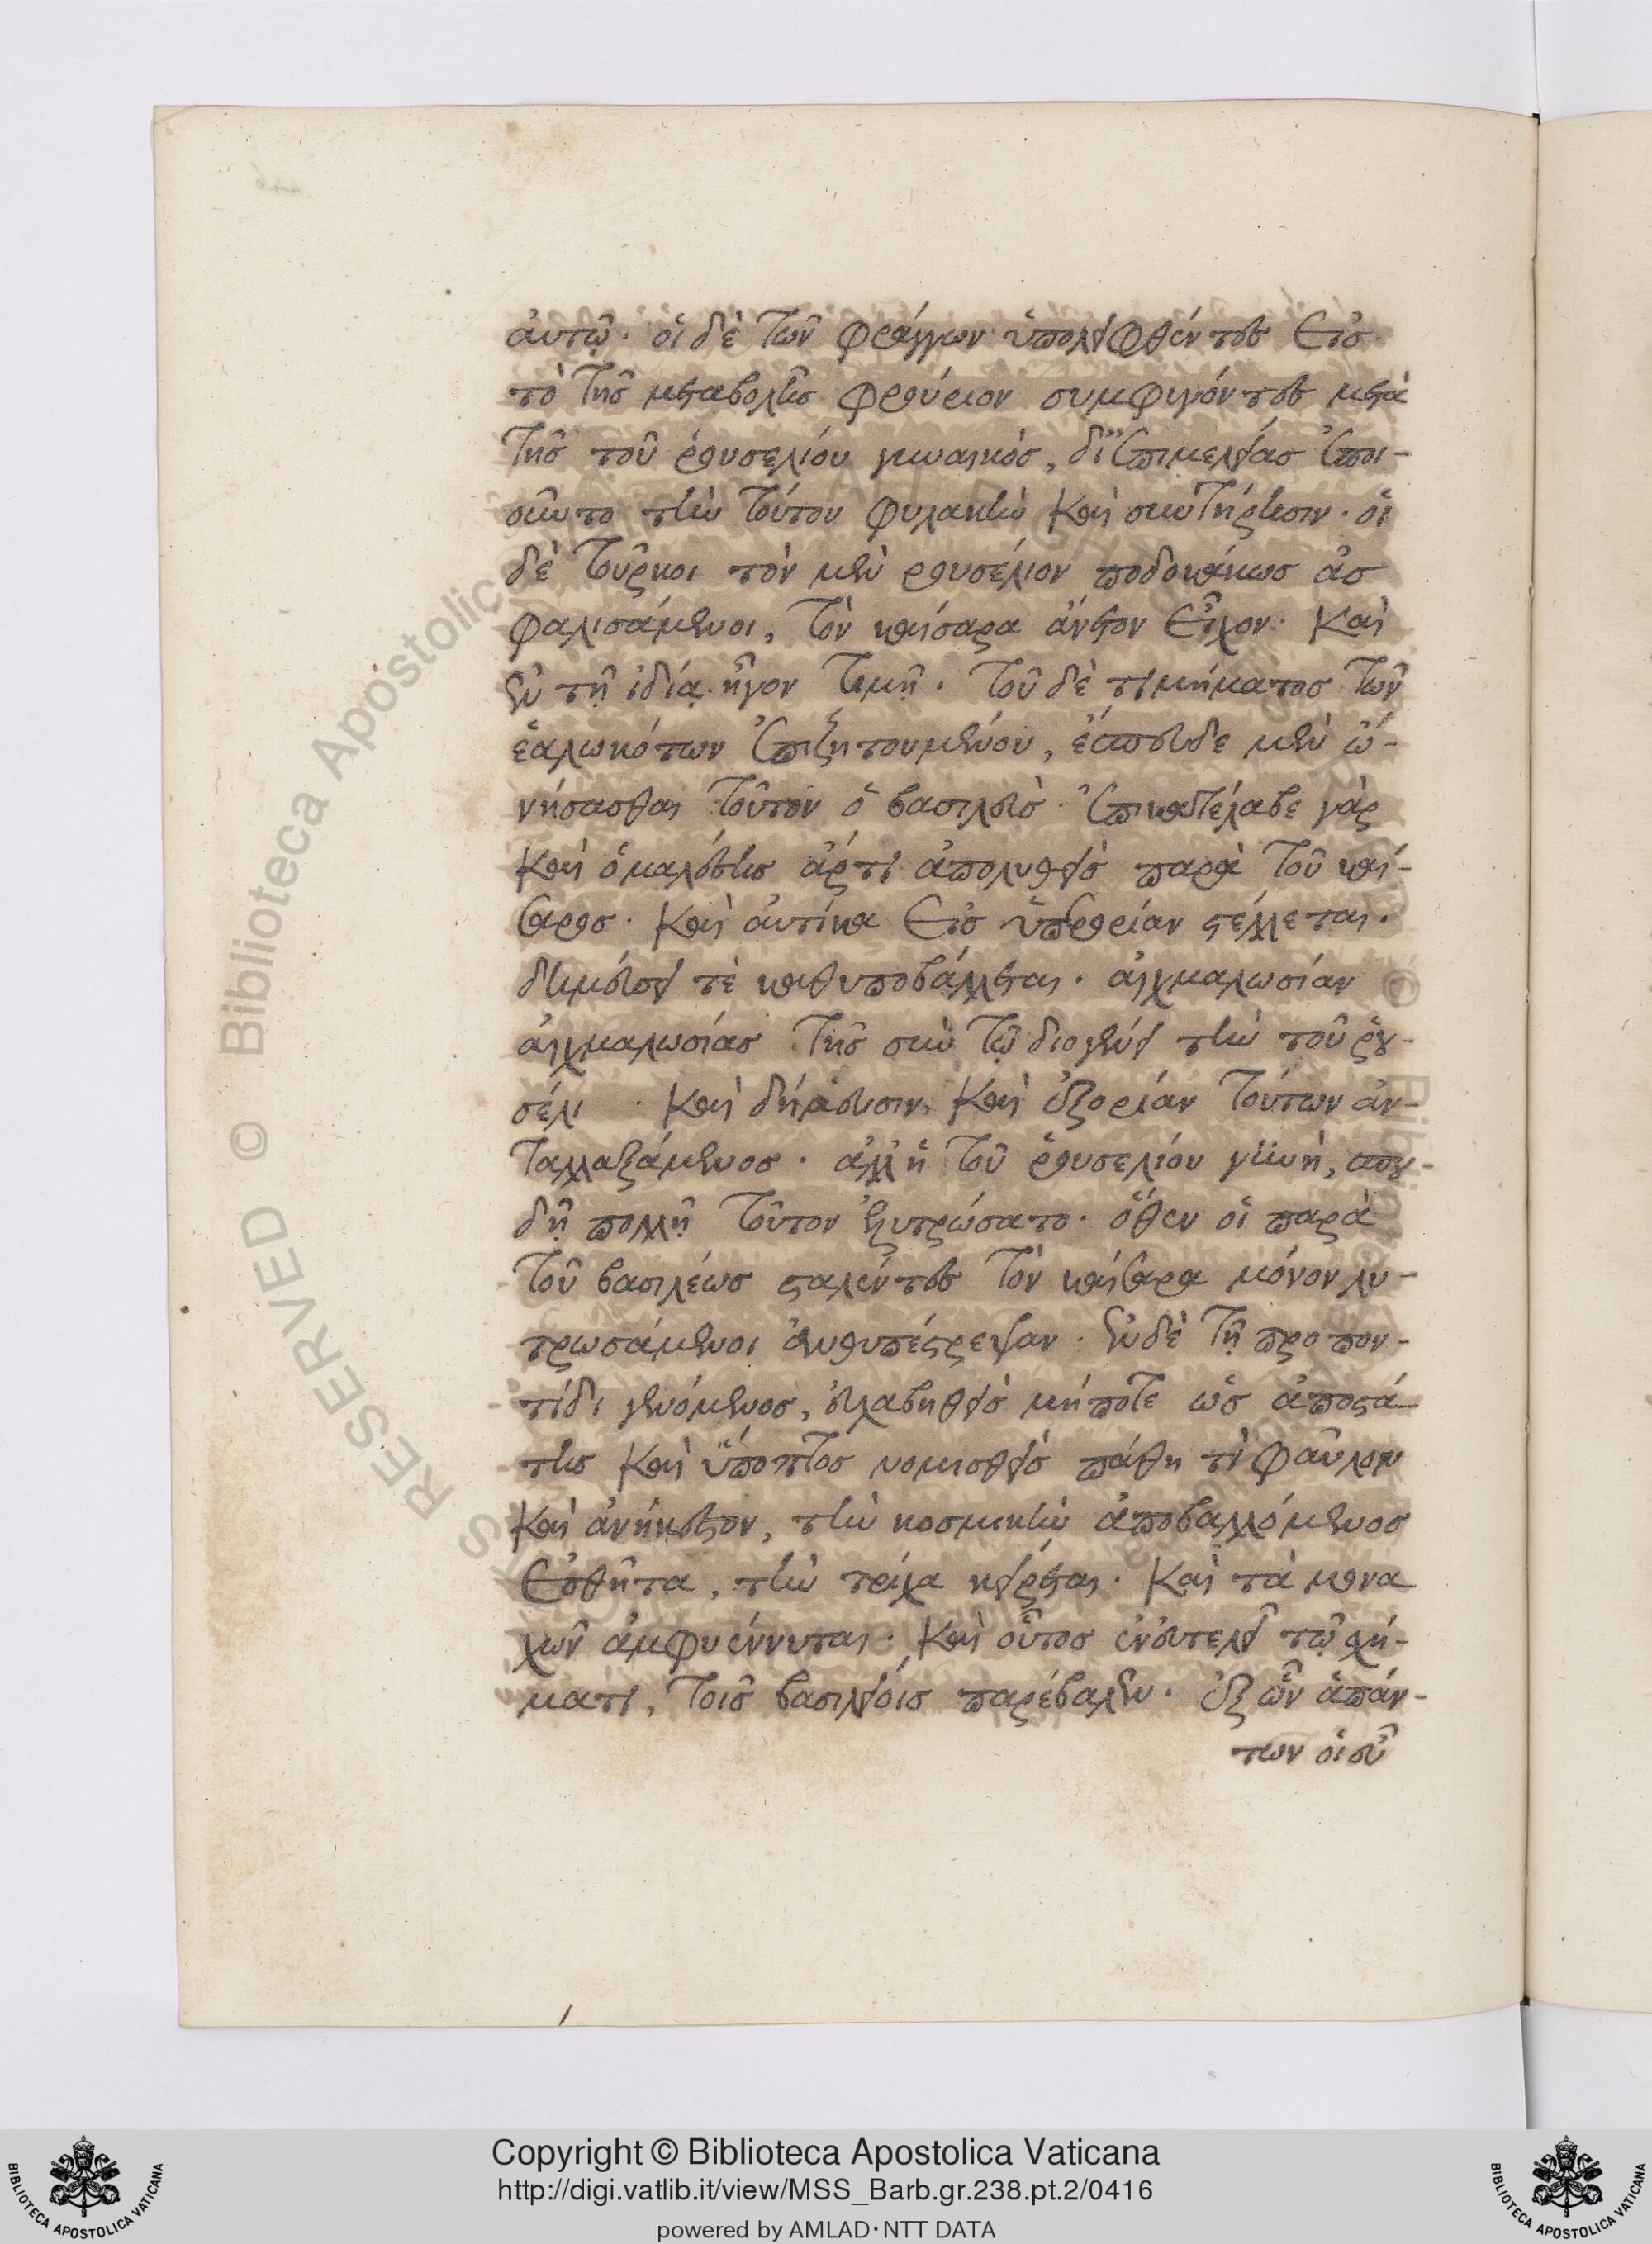 αὐτῷ. οἱ δὲ τῶν φράγγων ὑπολειφθέντες εἰς
τὸ τῆς μεταβολῆς φρούριον συμφυγόντες μετὰ
τῆς τοῦ ῥουσελίου γυναικὸς, δι' ἐπιμελείας ἐποι-
οῦντο τὴν τούτου φυλακὴν καὶ συντήρησιν. οἱ
δὲ τοῦρκοι τὸν μὲν ρουσέλιον ποδοκάκως ἀσ
φαλισάμενοι, τὸν καίσαρα ἄνετον εἶχον. καὶ
ἐν τῇ ἰδίᾳ ἦγον τιμῇ. τοῦ δὲ τιμήματος τῶν
ἑαλωκότων ἐπιζητουμένου, ἔσπευδε μὲν ὠ-
νήσασθαι τοῦτον ὁ βασιλεὺς. ἐπικατέλαβε γὰρ
καὶ ὁ μαλέσης ἄρτι ἀπολυθεὶς παρὰ τοῦ καί-
σαρος. καὶ αὐτίκα εἰς ὑπερορίαν στέλλεται.
δημεύσει τὲ καθυποβάλλεται. αἰχμαλωσίαν
αἰχμαλωσίας τῆς σὺν τῷ διογένει τὴν τοῦ ῥου-
σέλι . καὶ δήμευσιν καὶ ἐξορίαν τούτων ἀν-
ταλλαξάμενος. ἀλλ' ἡ τοῦ ῥουσελίου γυνὴ, σπου-
δῇ πολλῇ τοῦτον ἐλυτρώσατο. ὅθεν οἱ παρὰ
τοῦ βασιλέως σταλέντες τὸν καίσαρα μόνον λυ-
τρωσάμενοι ἀνθυπέστρεψαν. ἐν δὲ τῇ προπον-
τίδι γενόμενος, εὐλαβηθεὶς μήποτε ὡς ἀποστά
της καὶ ὕποπτος νομισθεὶς πάθη τὶ φαῦλον
καὶ ἀνήκεστον, τὴν κοσμικὴν ἀποβαλλόμενος
ἐσθῆτα, τὴν τρίχα κείρεται. καὶ τὰ μονα
χῶν ἀμφιέννυται. καὶ οὕτος ἐν εὐτελεῖ τῷ σχή-
ματι, τοῖς βασιλείοις παρέβαλεν. ἐξ ὧν ἁπάν-
των οἱ συ